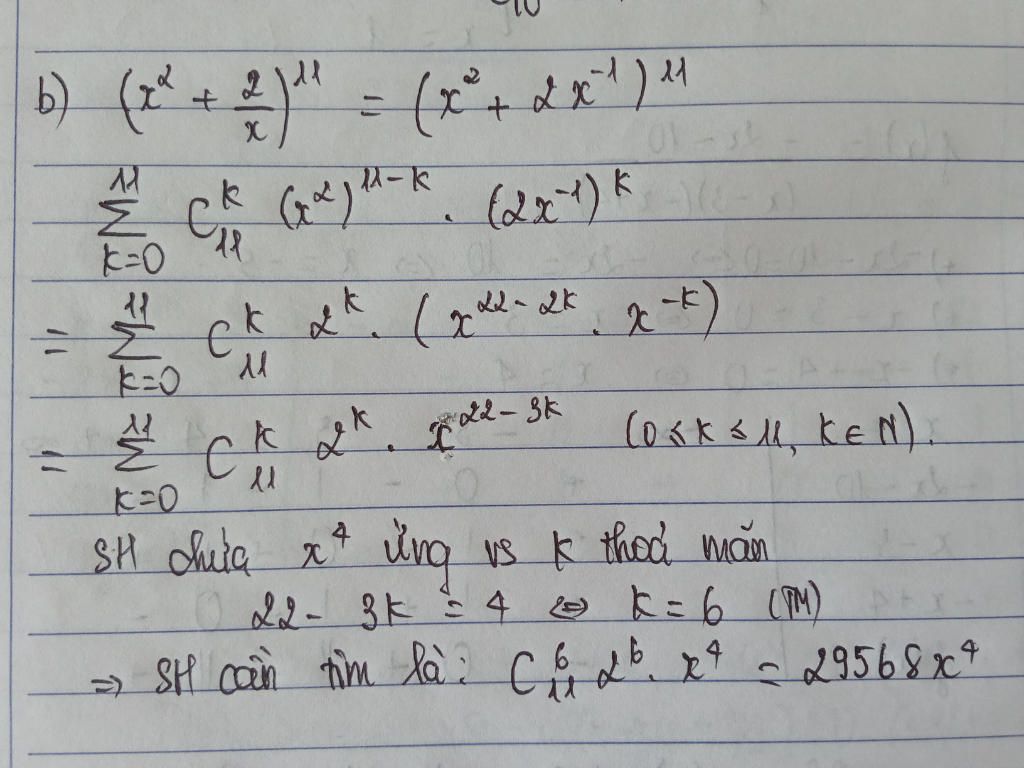 b) (x² + 2/x)¹¹ = (x² + 2x⁻¹)¹¹
∑_{k=0}^{11} C_{11}^{k} (x²)^{11-k} . (2x⁻¹)^{k}
= ∑_{k=0}^{11} C_{11}^{k} 2^{k} . (x^{22-2k} . x^{-k})
= ∑_{k=0}^{11} C_{11}^{k} 2^{k} . x^{22-3k} (0 ≤ k ≤ 11, k ∈ N).
SH chứa x⁴ ứng vs k thoả mãn
22 - 3k = 4 ⇔ k = 6 (TM)
⇒ SH cần tìm là: C_{11}^{6} 2⁶ . x⁴ = 29568x⁴